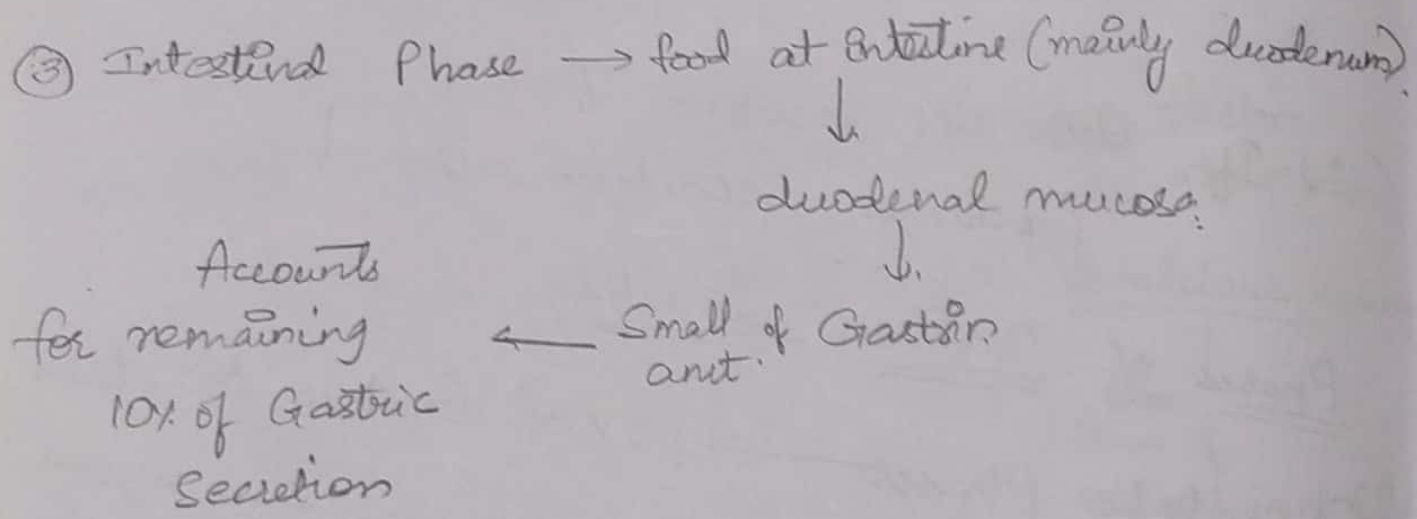 ③ Intestinal Phase → food at intestine (mainly duodenum).
↓
duodenal mucosa.
↓
Small amt. of Gastrin
← Accounts
for remaining
10% of Gastric
Secretion